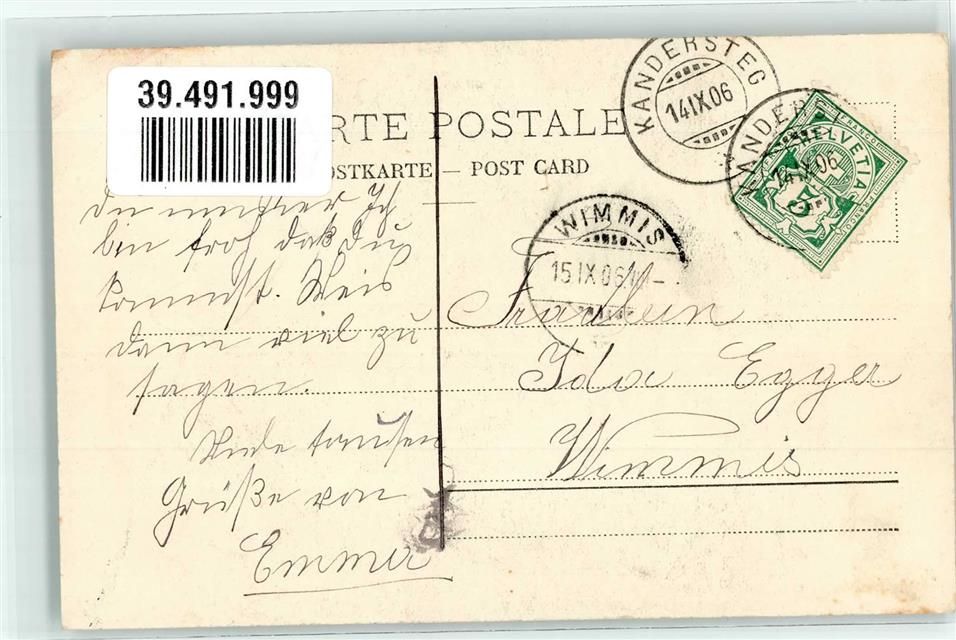 39.491.999
RTE POSTALE
OSTKARTE — POST CARD
KANDERSTEG
14 IX 06
KANDERST
14 IX 06
HELVETIA
FRANCO
FRANCO
5
WIMMIS
15 IX 06
du Ich
bin froh daß Du
kommst. Weis
dann viel zu
sagen.
Viele tausen
Grüße von
Emma
Fräulein
Ida Egger
Wimmis